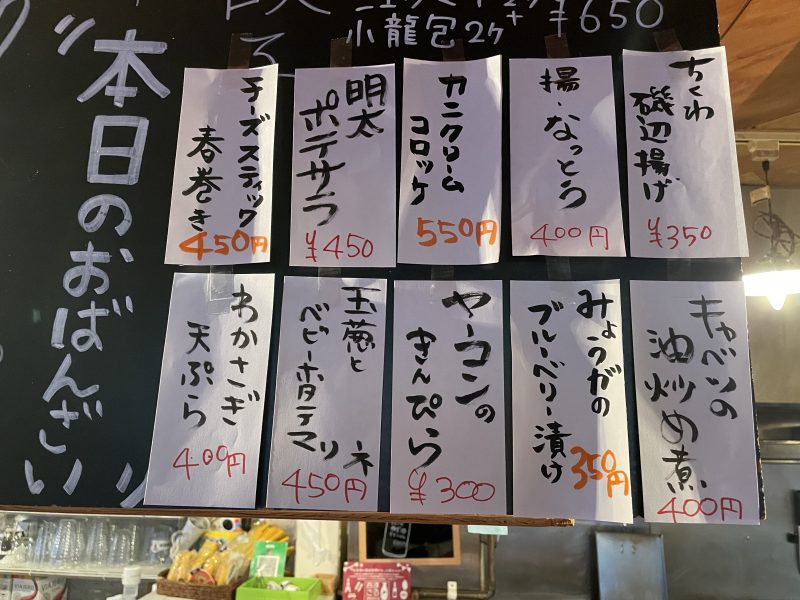 小龍包2ケ+ ¥650
本日のおばんざい
ちくわ
磯辺揚げ
¥350
揚・なっとう
400円
カニクリーム
コロッケ
550円
明太
ポテサラ
¥450
チーズスティック
春巻き
450円
キャベツの
油炒め煮
400円
みょうがの
ブルーベリー漬け
350円
ヤーコンの
きんぴら
¥300
玉葱と
ベビーホタテマリネ
450円
わかさぎ
天ぷら
400円